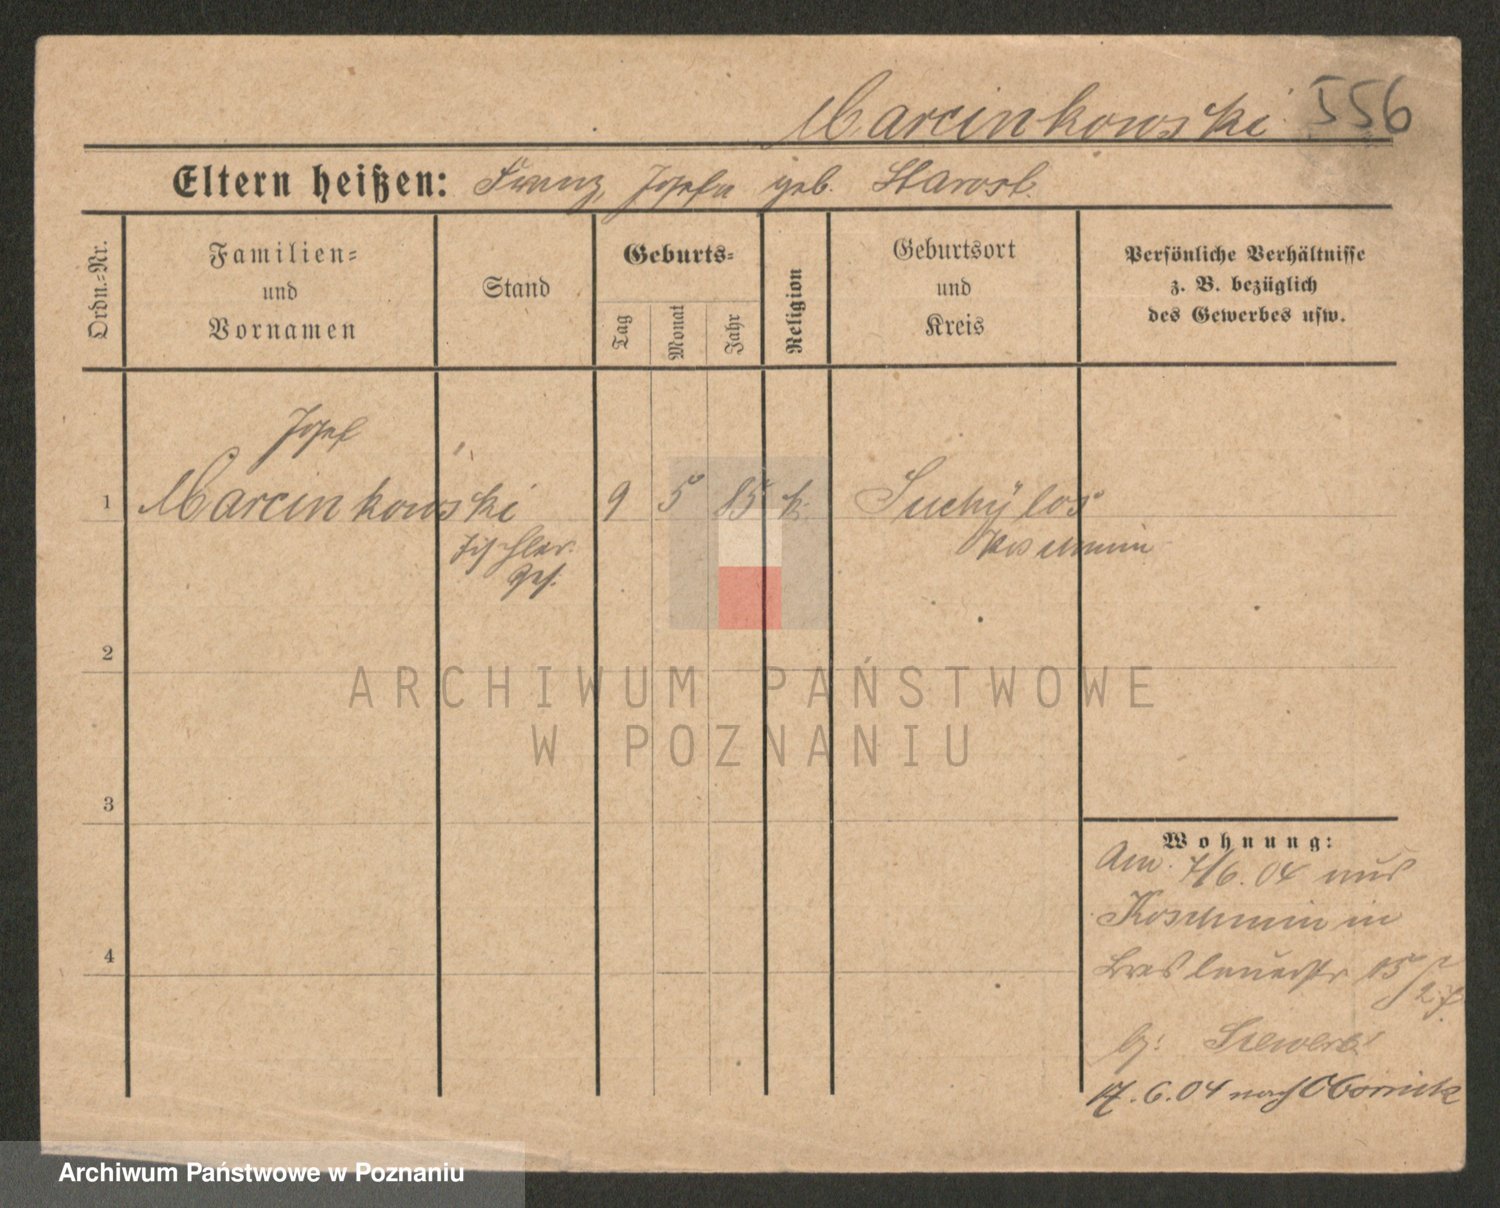 Marcinkowski 556
Eltern heißen: Franz, Josefa geb. Starost.
Ordn.=Nr.
Familien=
und
Vornamen
Stand
Geburts=
Tag
Monat
Jahr
Religion
Geburtsort
und
Kreis
Persönliche Verhältnisse
z. B. bezüglich
des Gewerbes usw.
Josef
1 Marcinkowski 9 5 85 k. Suchÿ los
Tischler
Ges.
Koschmin
2
3
4
Wohnung:
Am 7/6. 04 aus
Koschmin in
Breslauerstr 15/
27
bz:
17.6.04 nach Obornick
ARCHIWUM PAŃSTWOWE
W POZNANIU
Archiwum Państwowe w Poznaniu